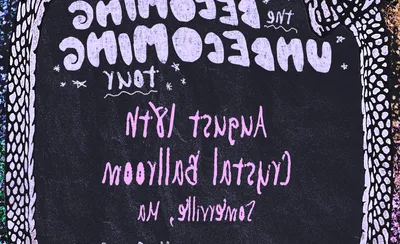 BECOMING
the
UNBECOMING
tour
August 18th
Crystal Ballroom
Somerville, Ma